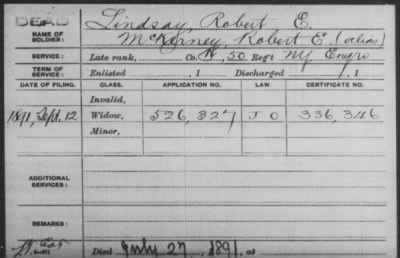 DEAD
NAME OF SOLDIER: Lindsay, Robert E.
McKenney, Robert E. (alias)
SERVICE: Late rank, Co. K, 50 Reg't NY Engrs
TERM OF SERVICE: Enlisted , 1 Discharged , 1
DATE OF FILING. CLASS. APPLICATION NO. LAW. CERTIFICATE NO.
Invalid,
1891, Sept. 12 Widow, 526,327 J O 336,346
Minor,
ADDITIONAL SERVICES:
REMARKS:
Died July 27, 1891, at